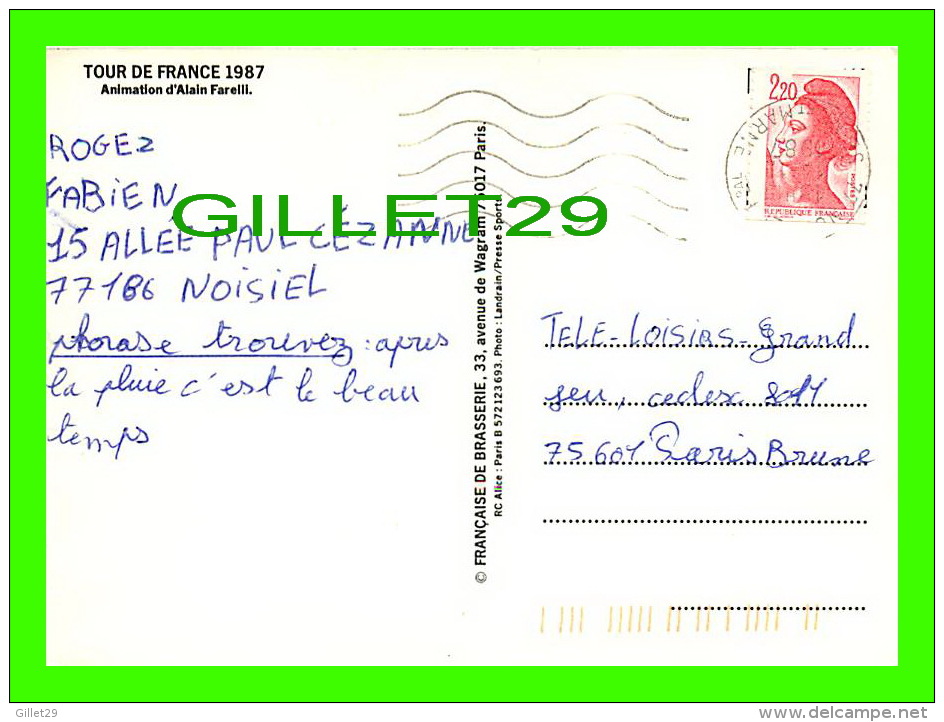 TOUR DE FRANCE 1987
Animation d'Alain Farelli.
ROGEZ
FABIEN
15 ALLÉE PAUL CÉZANNE
77186 NOISIEL
phrase trouvez : après
la pluie c'est le beau
temps
GILLET29
© FRANÇAISE DE BRASSERIE, 33, avenue de Wagram 75017 Paris.
RC Alice : Paris B 572 123 693. Photo : Landrain/Presse Sports.
2,20
MARNE
REPUBLIQUE FRANÇAISE
TELE-LOISIRS-Grand
jeu, cedex 2011
75601 Paris Brune
Gillet29